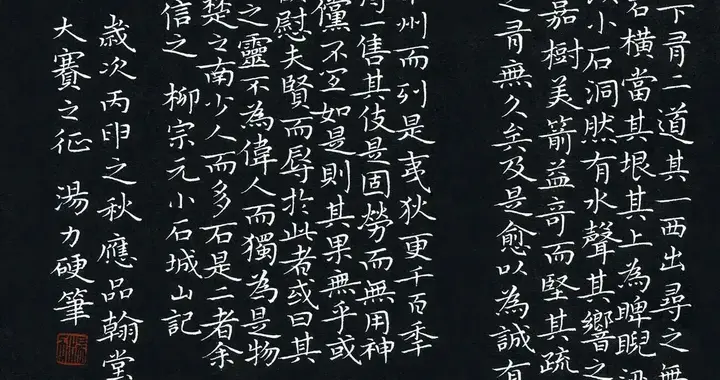 下有二道其一西出尋之無
石橫當其垠其上為睥睨
以小石洞然有水聲其響之
嘉樹美箭益奇而堅其疏
之有無久矣及是愈以為誠有
州而列是夷狄更千百年
一售其伎是固勞而無用神
儻不宜如是則其果無乎或
慰夫賢而辱於此者或曰其
之靈不為偉人而獨為是物
楚之南少人而多石是二者余
信之 柳宗元小石城山記
歲次丙申之秋應品翰堂
大賽之征 湯力硬筆